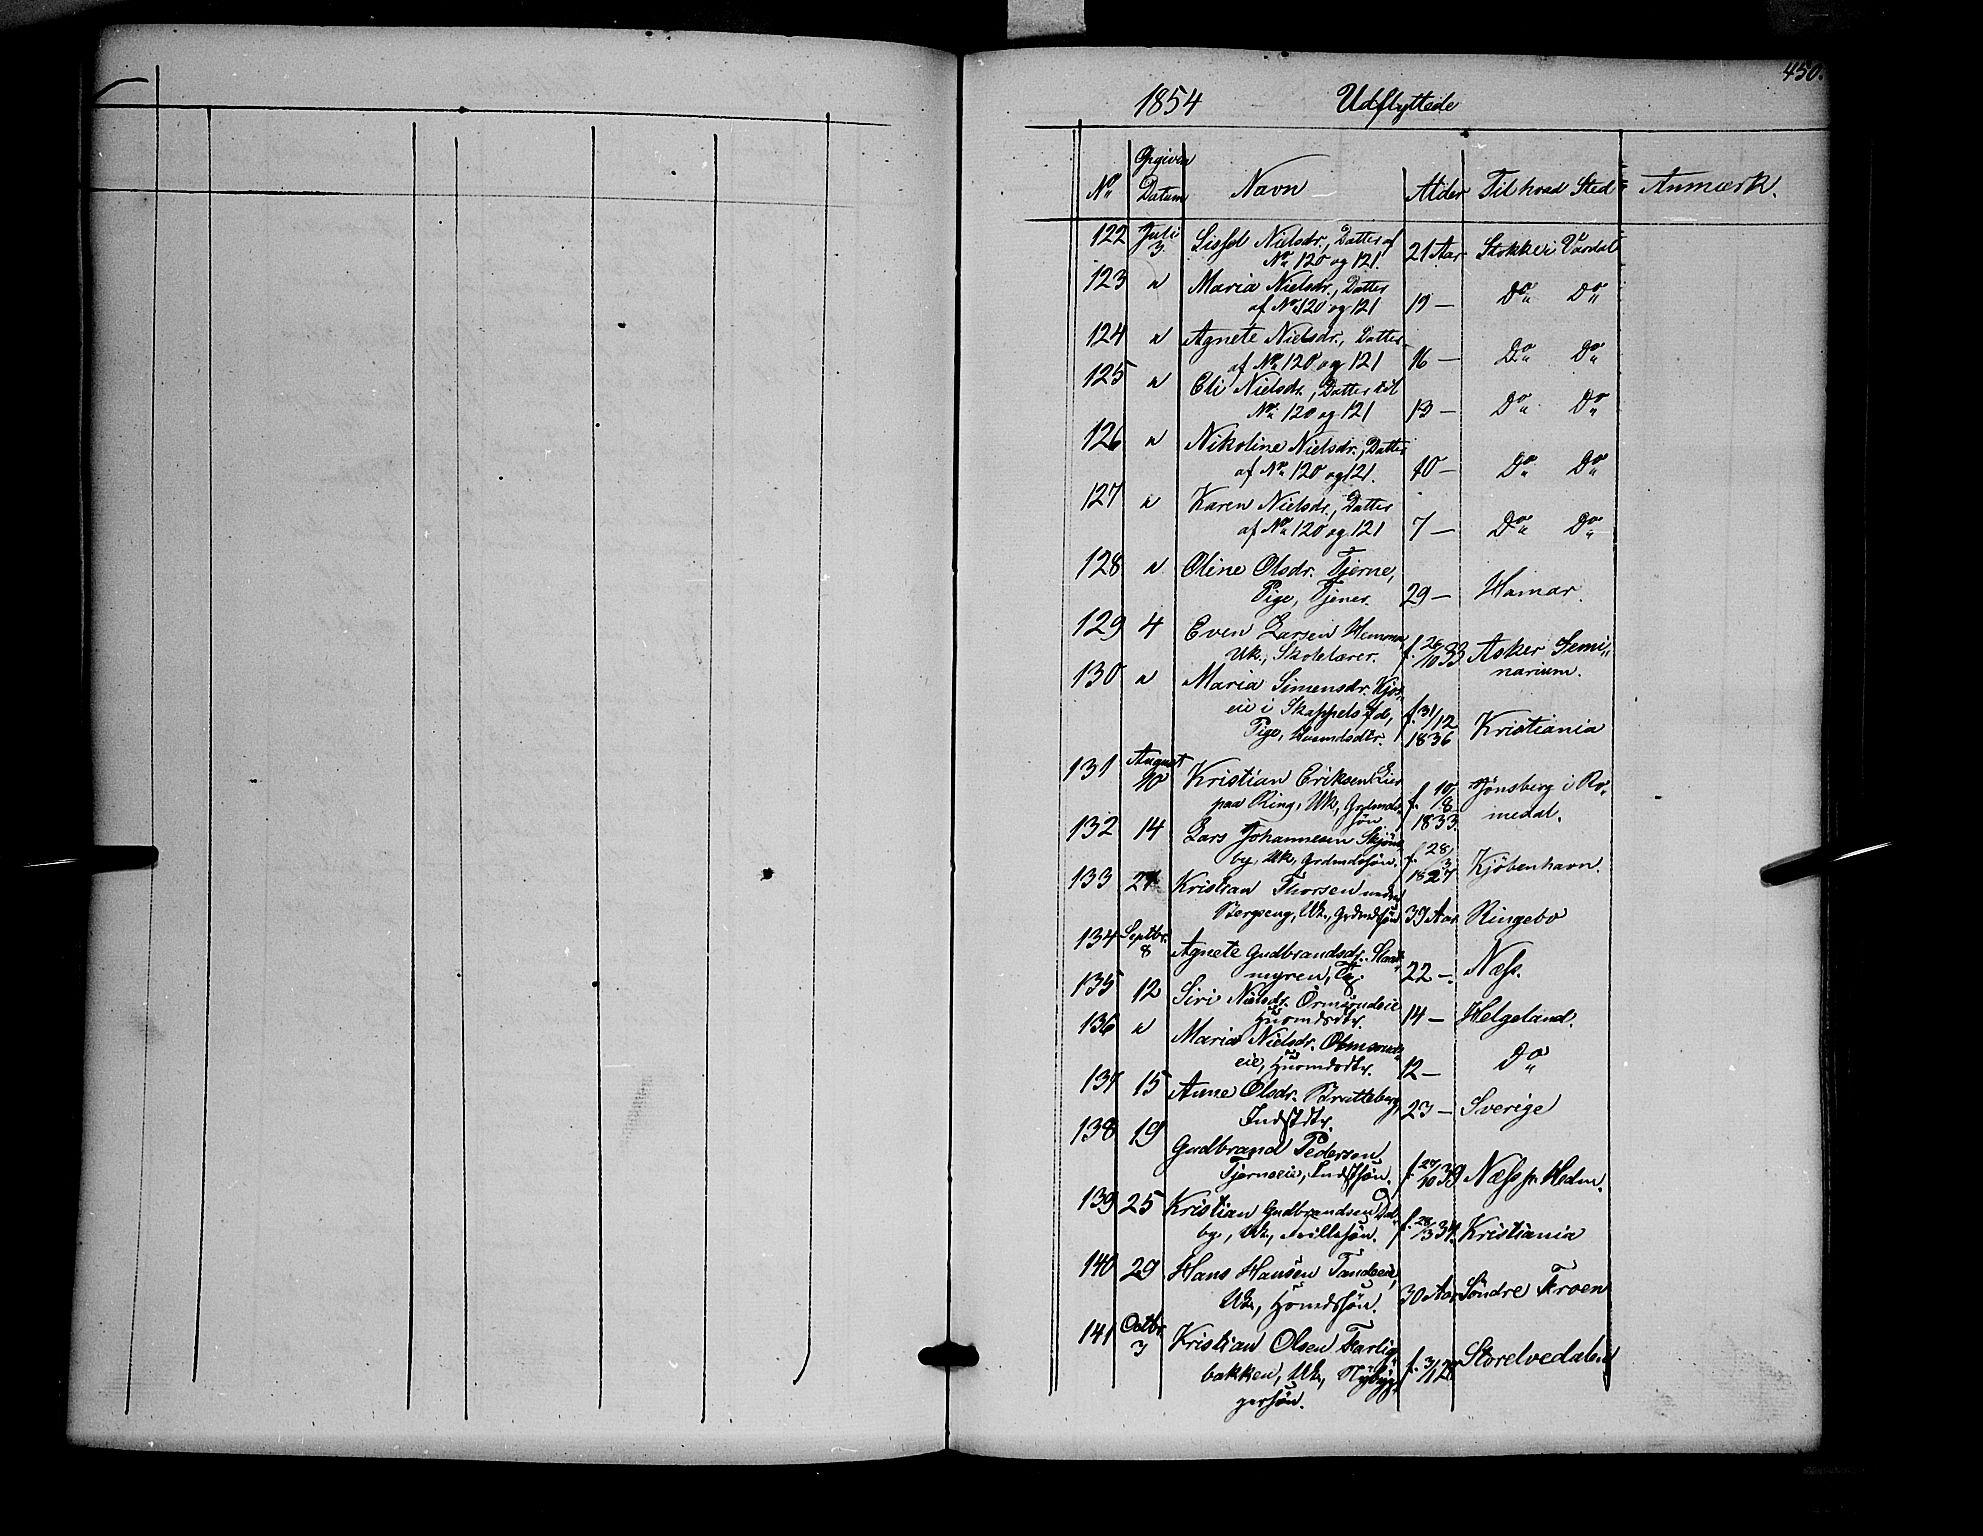 450.
1854 Udflyttede
No Opgiven Datum Navn Alder Til hvad Sted Anmærk.
122 Juli 3. Sissel Nielsdr., Datter af
No 120 og 121. 21 Aar Stokke i Vardal
123 " Maria Nielsdr., Datter
af No 120 og 121 19 — Do Do
124 " Agnete Nielsdr., Datter
af No 120 og 121 16 — Do Do
125 " Eli Nielsdr., Datter til
No 120 og 121 13 — Do Do
126 " Nikoline Nielsdr., Datter
af No 120 og 121. 10 — Do Do
127 " Karen Nielsdr., Datter
af No 120 og 121 7 — Do Do
128 " Oline Olsdr. Tjerne,
Pige, Tjener. 29 — Hamar.
129 4 Even Larsen
Uk., Skolelærer. f. 26/10 33 Asker Semi-
narium.
130 " Maria Simensdr. Kjos-
eie i
Pige, f. 31/12 1836 Kristiania
131 August 10 Kristian Eriksen Eier
paa Ring, Uk, Grdmds-
søn f. 10/8 1833. Jönsberg i Ro-
medal.
132 14 Lars Johannesen Skjöns-
by, Uk, Grdmdssøn. f. 28/3 1827 Kjöbenhavn.
133 Kristian Thorsen under
Bergseng, Uk., Grdmdssøn 39 Aar Ringebo
134 Septbr. 8 Agnete Gudbrandsdr.
myren, Tj. 22 — Næss.
135 12 Siri Nielsdr. Ormsrudeie
Husmdsdtr. 14 — Helgeland.
136 " Maria Nielsdr. Ormsruds-
eie, Husmdsdtr. 12 — Do
137 15 Anne Olsdr. Bratteberg,
Indstdtr. 23 — Sverige
138 19 Gudbrand Pedersen
Tjerneeie, Indstsøn. f. 27/10 39 Næss p. Hedm.
139 25 Kristian Gudbrandsen Dal-
by, Uk., f. 28/3 34. Kristiania
140 29 Hans Hansen Tandeeie,
Uk., Husmdssøn. 30 Aar Söndre Froen
141 Octbr. 3 Kristian Olsen Farlig-
bakken, Uk., Nybyg-
gersøn. f. 3/1 28 Storelvedalen